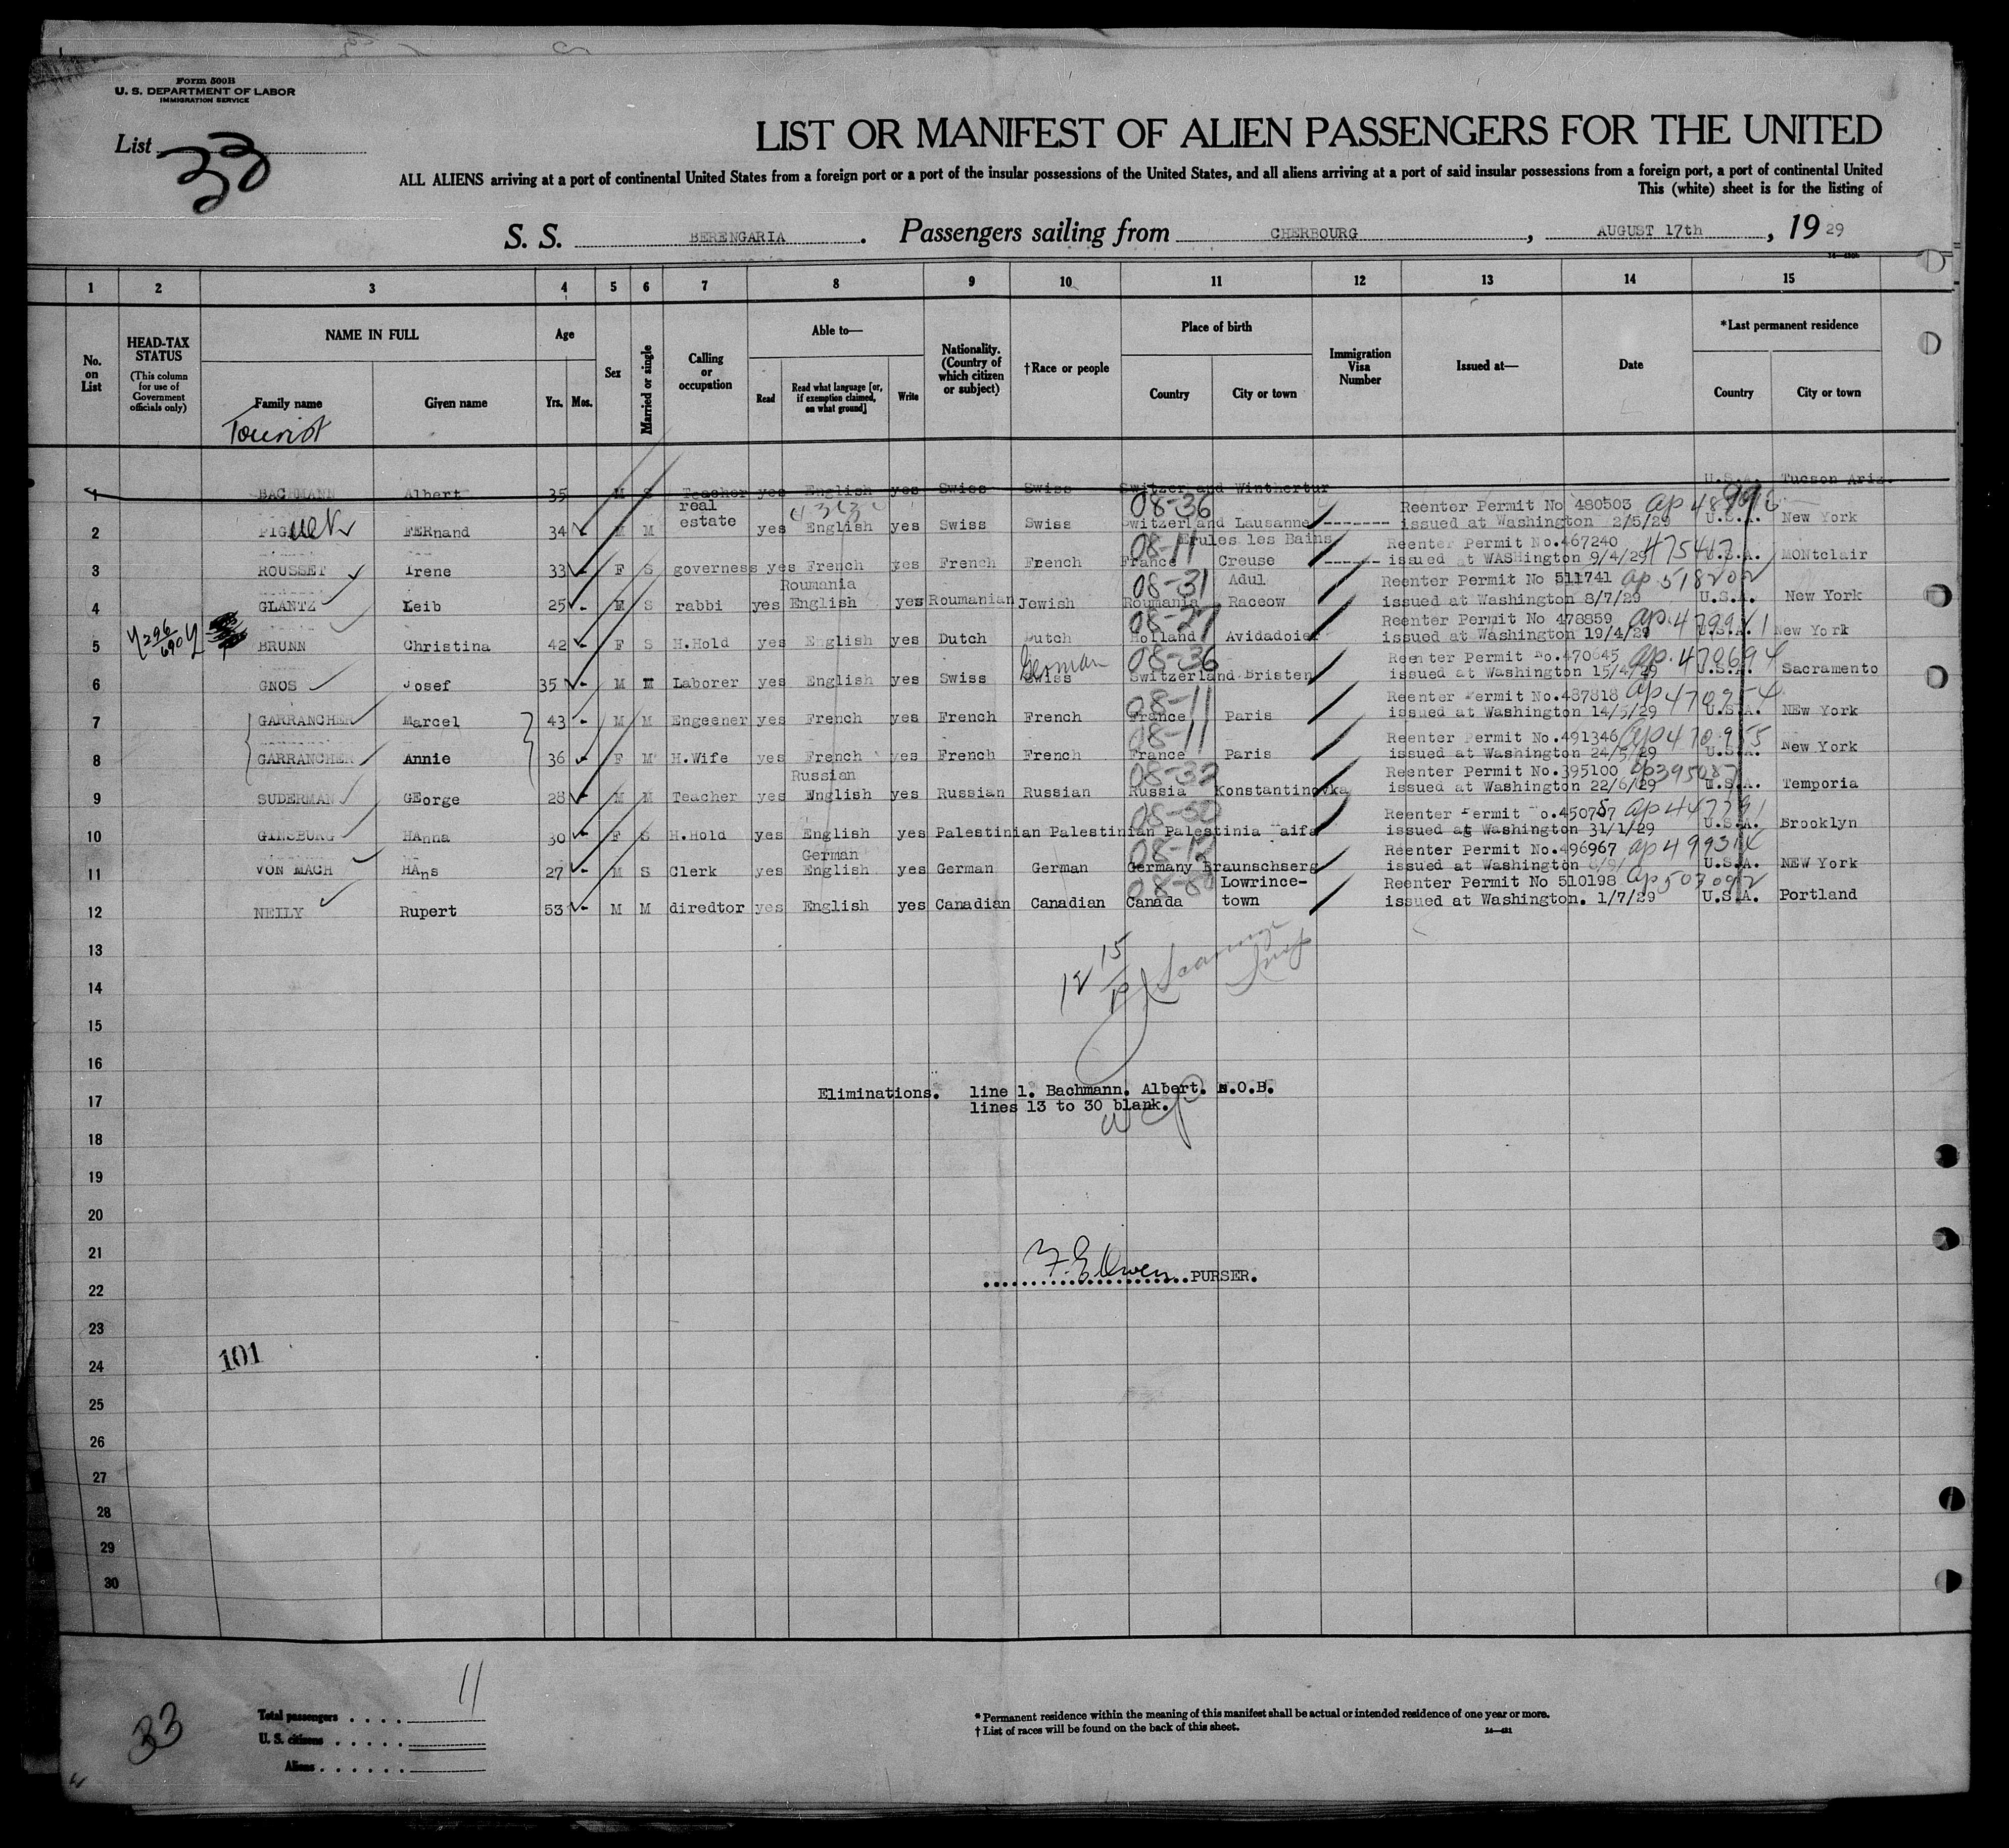 Form 500B
U. S. DEPARTMENT OF LABOR
IMMIGRATION SERVICE
List 33
LIST OR MANIFEST OF ALIEN PASSENGERS FOR THE UNITED
ALL ALIENS arriving at a port of continental United States from a foreign port or a port of the insular possessions of the United States, and all aliens arriving at a port of said insular possessions from a foreign port, a port of continental United
This (white) sheet is for the listing of
S. S. BERENGARIA. Passengers sailing from CHERBOURG, AUGUST 17th, 19 29
1 2 3 4 5 6 7 8 9 10 11 12 13 14 15
No. on List
HEAD-TAX STATUS (This column for use of Government officials only)
NAME IN FULL
Family name Given name
Age Yrs. Mos.
Sex
Married or single
Calling or occupation
Able to—
Read Read what language [or, if exemption claimed, on what ground] Write
Nationality. (Country of which citizen or subject)
†Race or people
Place of birth
Country City or town
Immigration Visa Number
Issued at—
Date
*Last permanent residence
Country City or town
Tourist
1 BACHMANN Albert 35 M S Teacher yes English yes Swiss Swiss Switzerland Winthertur U.S.A. Tucson Ariz.
2 FERnand 34 M M real estate yes English yes Swiss Swiss 08-36 Switzerland Lausanne Reenter Permit No 480503 issued at Washington 2/5/29 U.S.A. New York
3 ROUSSET Irene 33 F S governess yes French yes French French 08-11 France les Bains Creuse Reenter Permit No.467240 issued at WASHington 9/4/29 U.S.A. MONtclair
4 GLANTZ Leib 25 M S rabbi yes Roumania English yes Roumanian Jewish 08-31 Roumania Adul Raceow Reenter Permit No 511741 issued at Washington 8/7/29 ap 518202 U.S.A. New York
5 BRUNN Christina 42 F S H.Hold yes English yes Dutch Dutch 08-27 Holland Avidadoier Reenter Permit No 478859 issued at Washington 19/4/29 U.S.A. New York
6 GNOS Josef 35 M M Laborer yes English yes Swiss German Swiss 08-36 Switzerland Bristen Reenter Permit No.470645 issued at Washington 15/4/29 ap. 470694 U.S.A. Sacramento
7 GARRANCHER Marcel 43 M M Engeener yes French yes French French 08-11 France Paris Reenter Permit No.487818 issued at Washington 14/5/29 ap 470954 U.S.A. NEw York
8 GARRANCHER Annie 36 F M H.Wife yes French yes French French 08-11 France Paris Reenter Permit No.491346 issued at Washington 24/5/29 ap 470955 U.S.A. New York
9 SUDERMAN GEorge 28 M M Teacher yes Russian English yes Russian Russian 08-32 Russia Konstantinovka Reenter Permit No.395100 issued at Washington 22/6/29 ap 395087 U.S.A. Temporia
10 GINSBURG HAnna 30 F S H.Hold yes English yes Palestinian Palestinian Palestinia Haifa Reenter Permit issued at Washington 31/1/29 ap 447791 U.S.A. Brooklyn
11 VON MACH HAns 27 M S Clerk yes German English yes German German 08-12 Germany Braunschserg Reenter Permit No.496967 issued at Washington U.S.A. NEW York
12 NEILY Rupert 53 M M diredtor yes English yes Canadian Canadian Canada Lowrince-town Reenter Permit No 510198 issued at Washington. 1/7/29 ap 503092 U.S.A. Portland
13
14
15
16
Eliminations. line 1. Bachmann. Albert. N.O.B.
17
lines 13 to 30 blank.
18
19
20
21
F. E. Owen PURSER.
22
23
24 101
25
26
27
28
29
30
33
Total passengers . . . . 11
U. S. citizens . . . . .
Aliens . . . . . .
* Permanent residence within the meaning of this manifest shall be actual or intended residence of one year or more.
† List of races will be found on the back of this sheet.